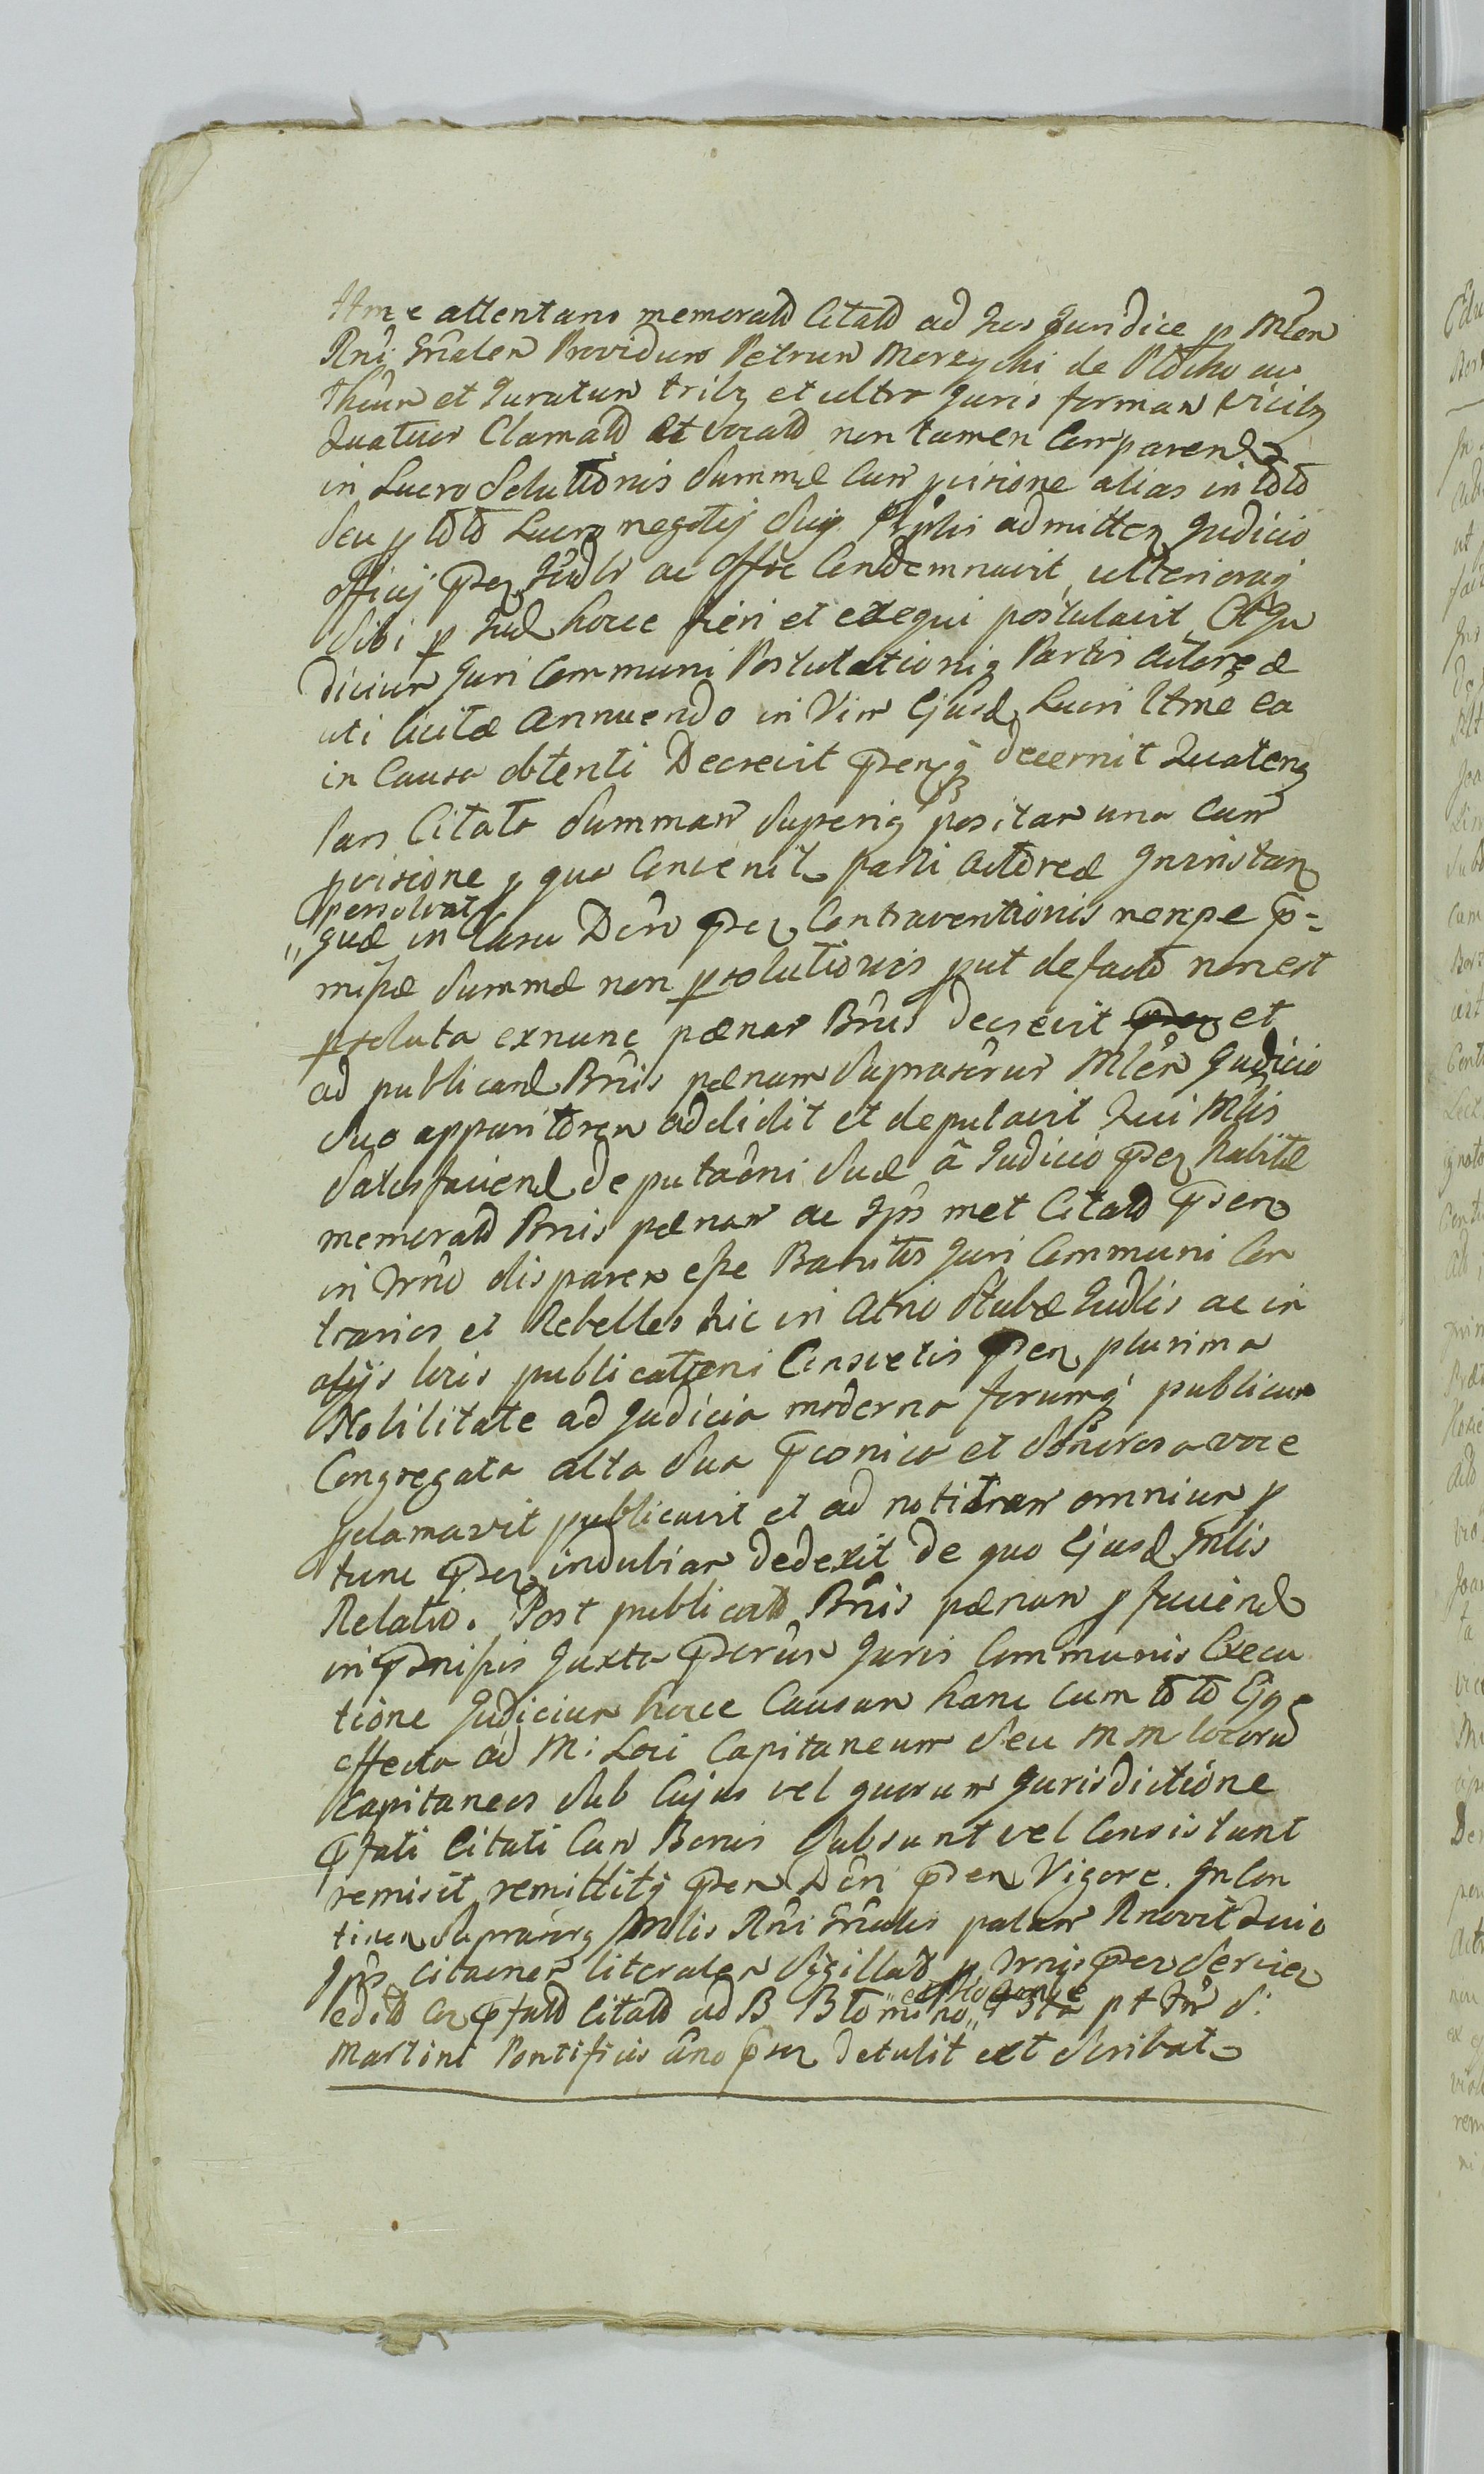 Itme attentans memoratos Citatos ad hus Juridice p Mlen
Rni Gnalen Providum Petrum Morzycki de Plocko au
Thum et Juratum tribz et ultra Juris forman vicibz
Quatuor Clamatos et vocatos non tamen Comparend
in Lucro Solutionis Summæ Cum pvisione alias in toto
Seu p toto Lucro negotij Suij Ipsis admitten Judicio
officij psen Judli ac Offic Condemnavit ulteriorag
Sibi p Jud hocce fieri et exequi postulavit Et Ju
dicium Juri Communi Postulationiq Partis Actoreæ
uti licitæ annuendo in Vim Ejusd Lucri Itme ea
in Causa obtenti Decrevit psenq decernit Quateng
Pars Citata Summam Superiq positam una Cum
pvisione p qua Convenit parti Actoreæ Juristan
persolvat
quæ in Casu Dni psen Contraventionis nempe p=
missæ Summæ non psolutionis put de facto non est
psoluta exnunc pænam Bnis decrevit et
ad publicand Bnis pænam Suprascrum Mlen Judicio
Suo apparitorem addidit et deputavit Qui Mlis
Satisfaciend deputaoni Suæ â Judicio psen habitæ
memoratos Bnis pænam ac Ips met Citatos psen
in Trno disparen esse Banitos Juri Communi Con
trarios et Rebelles hic in Atrio Stubæ Judlis ac in
alijs locis publicationi Consvetis psen plurima
Nobilitate ad Judicia moderna forumq publicum
Congregata alta Sua pconica et Sonorosa voce
pclamavit publicavit et ad notitiam omnium p
tunc psen indubiam dedexit de quo Ejusd Mlis
Relatio. Post publicatos Bnis pænam p faciend
in pmissis Juxta pscrum Juris Communis Execu
tione Judicium hocce Causam hanc Cum toto Ejq
effectu ad M: Loci Capitaneum Seu M M locorum
Capitaneos Sub Cujus vel quorum Jurisdictione
pfati Citati Cum Bonis Subsunt vel Consistunt
remisit remittitq psen Dcri psen Vigore. In Con
tinen Suprascrq Mlis Rni Gnalis palam Rnovit Quia
Ips citaonen literalen Sigillatos p Trnis psen Servien
edito Con pfatos Citatos ad B B Tomino pt Fm S:
Martini Pontificis ano psen detulit et Scribat